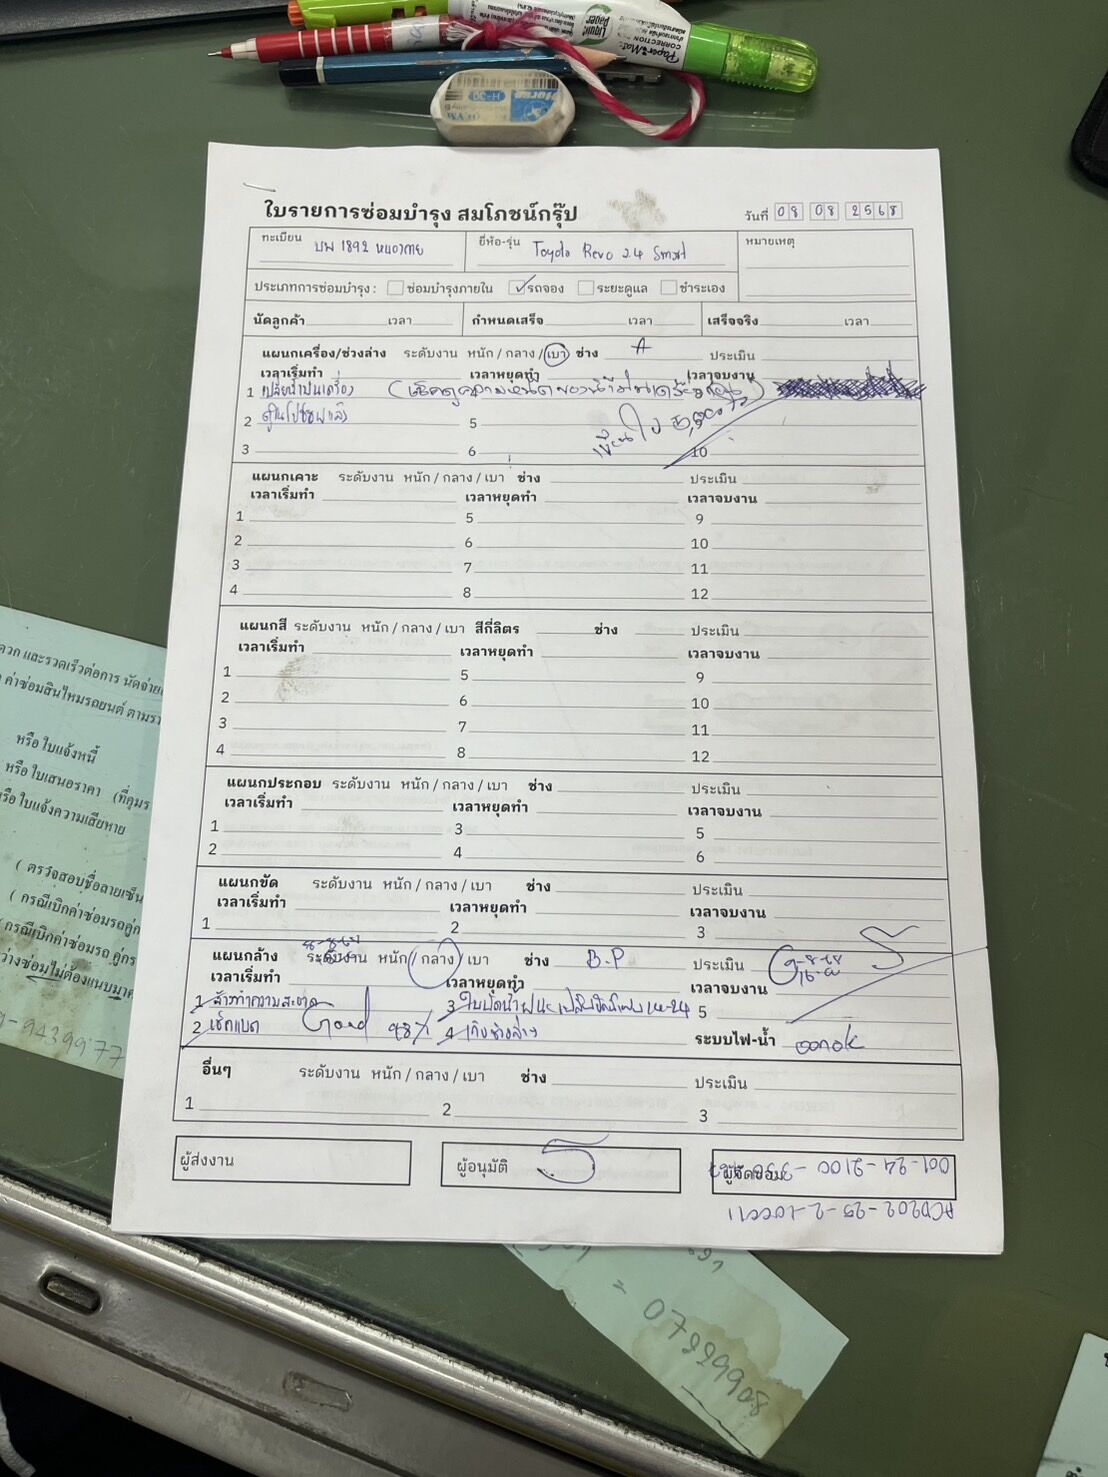 Liquid Paper
Paper Mate
CORRECTION
H-99
ใบรายการซ่อมบำรุง สมโภชน์กรุ๊ป
วันที่ 08 08 2568
ทะเบียน บพ 1892 หนองคาย
ยี่ห้อ-รุ่น Toyota Revo 2.4 Smart
หมายเหตุ
ประเภทการซ่อมบำรุง : ซ่อมบำรุงภายใน ✓รถจอง ระยะดูแล ชำระเอง
นัดลูกค้า เวลา กำหนดเสร็จ เวลา เสร็จจริง เวลา
แผนกเครื่อง/ช่วงล่าง ระดับงาน หนัก / กลาง / เบา ช่าง A ประเมิน
เวลาเริ่มทำ เวลาหยุดทำ เวลาจบงาน
1 เปลี่ยนน้ำมันเครื่อง (เช็คดูความหนืดของน้ำมันเครื่องก่อน)
2 5 เขียนใบ 5,000 โล
3 6 10
แผนกเคาะ ระดับงาน หนัก / กลาง / เบา ช่าง ประเมิน
เวลาเริ่มทำ เวลาหยุดทำ เวลาจบงาน
1 5 9
2 6 10
3 7 11
4 8 12
แผนกสี ระดับงาน หนัก / กลาง / เบา สีกี่ลิตร ช่าง ประเมิน
เวลาเริ่มทำ เวลาหยุดทำ เวลาจบงาน
1 5 9
2 6 10
3 7 11
4 8 12
แผนกประกอบ ระดับงาน หนัก / กลาง / เบา ช่าง ประเมิน
เวลาเริ่มทำ เวลาหยุดทำ เวลาจบงาน
1 3 5
2 4 6
แผนกขัด ระดับงาน หนัก / กลาง / เบา ช่าง ประเมิน
เวลาเริ่มทำ เวลาหยุดทำ เวลาจบงาน
1 2 3
แผนกล้าง ระดับงาน หนัก / กลาง / เบา ช่าง B.P ประเมิน
เวลาเริ่มทำ เวลาหยุดทำ เวลาจบงาน
1 ล้างทำความสะอาด 3 ใบปัดน้ำฝน 14-24 5
2 เช็คแบต Good 98% 4 เก็บช่วงล่าง ระบบไฟ-น้ำ ออกok
อื่นๆ ระดับงาน หนัก / กลาง / เบา ช่าง ประเมิน
1 2 3
ผู้ส่งงาน
ผู้อนุมัติ
ผู้จัดซ่อม
ดวก และรวดเร็วต่อการ นัดจ่าย
ค่าซ่อมสินไหมรถยนต์ ตามรา
หรือ ใบแจ้งหนี้
หรือ ใบเสนอราคา (ที่คุมร
รือ ใบแจ้งความเสียหาย
( ตรวจสอบชื่อลายเซ็น
( กรณีเบิกค่าซ่อมรถคู่ก
( กรณีเบิกค่าซ่อมรถ คู่กร
ว่างซ่อมไม่ต้องแนบมาค
9-9439977